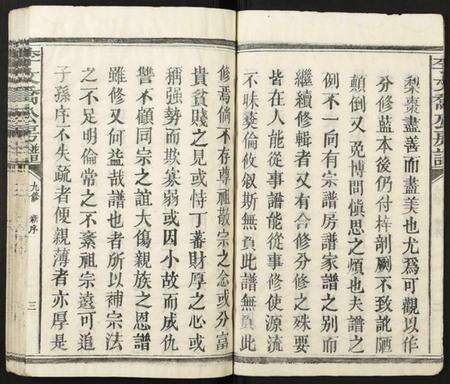 梨棗盡善而盡美也尤爲可觀以作
分修藍本後仍付梓剞劂不致訛陋
顛倒又免博問愼思之煩也夫譜之
例不一向有宗譜房譜家譜之别而
繼續修輯者又有合修分修之殊要
皆在人能從事譜能從事修使源流
不昧彝倫攸叙斯無負此譜無負此
修焉倘不存尊祖敬宗之念或分富
貴貧賤之見或恃丁蕃財厚之心或
稱强勢而欺寡弱或因小故而成仇
讐不顧同宗之誼大傷親族之恩譜
雖修又何益哉譜也者所以補宗法
之不足明倫常之不紊祖宗遠可追
子孫序不失疏者便親薄者亦厚是
李文喬公房譜
序
三